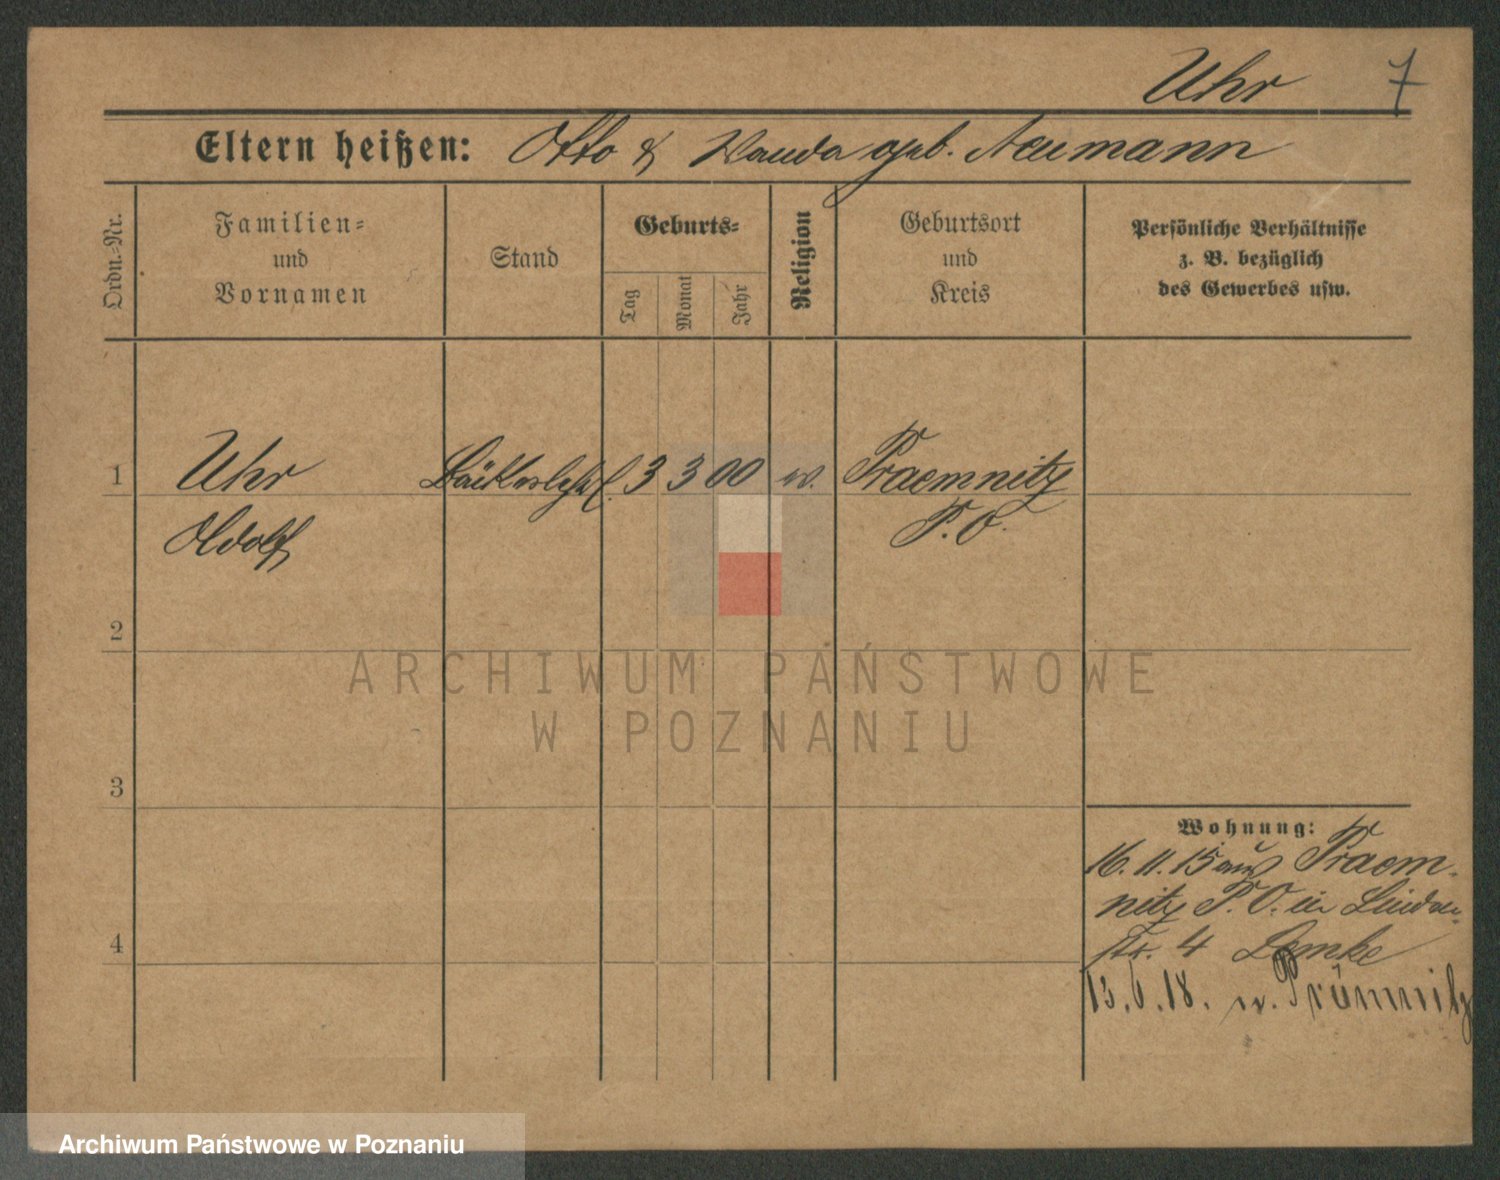 Uhr 7
Eltern heißen: Otto & Wanda geb. Neumann
Ordn.-Nr.
Familien-
und
Vornamen
Stand
Geburts-
Tag
Monat
Jahr
Religion
Geburtsort
und
Kreis
Persönliche Verhältnisse
z. B. bezüglich
des Gewerbes usw.
1 Uhr Bäckerlehrl. 3 3 00 ev. Praemnitz
Adolf P. O.
2
ARCHIWUM PAŃSTWOWE
W POZNANIU
3
Wohnung:
16. 11. 15 aus Praem-
nitz P. O. in Linden-
str. 4 Lemke
4
13. 6. 18. n. Prömnitz
Archiwum Państwowe w Poznaniu